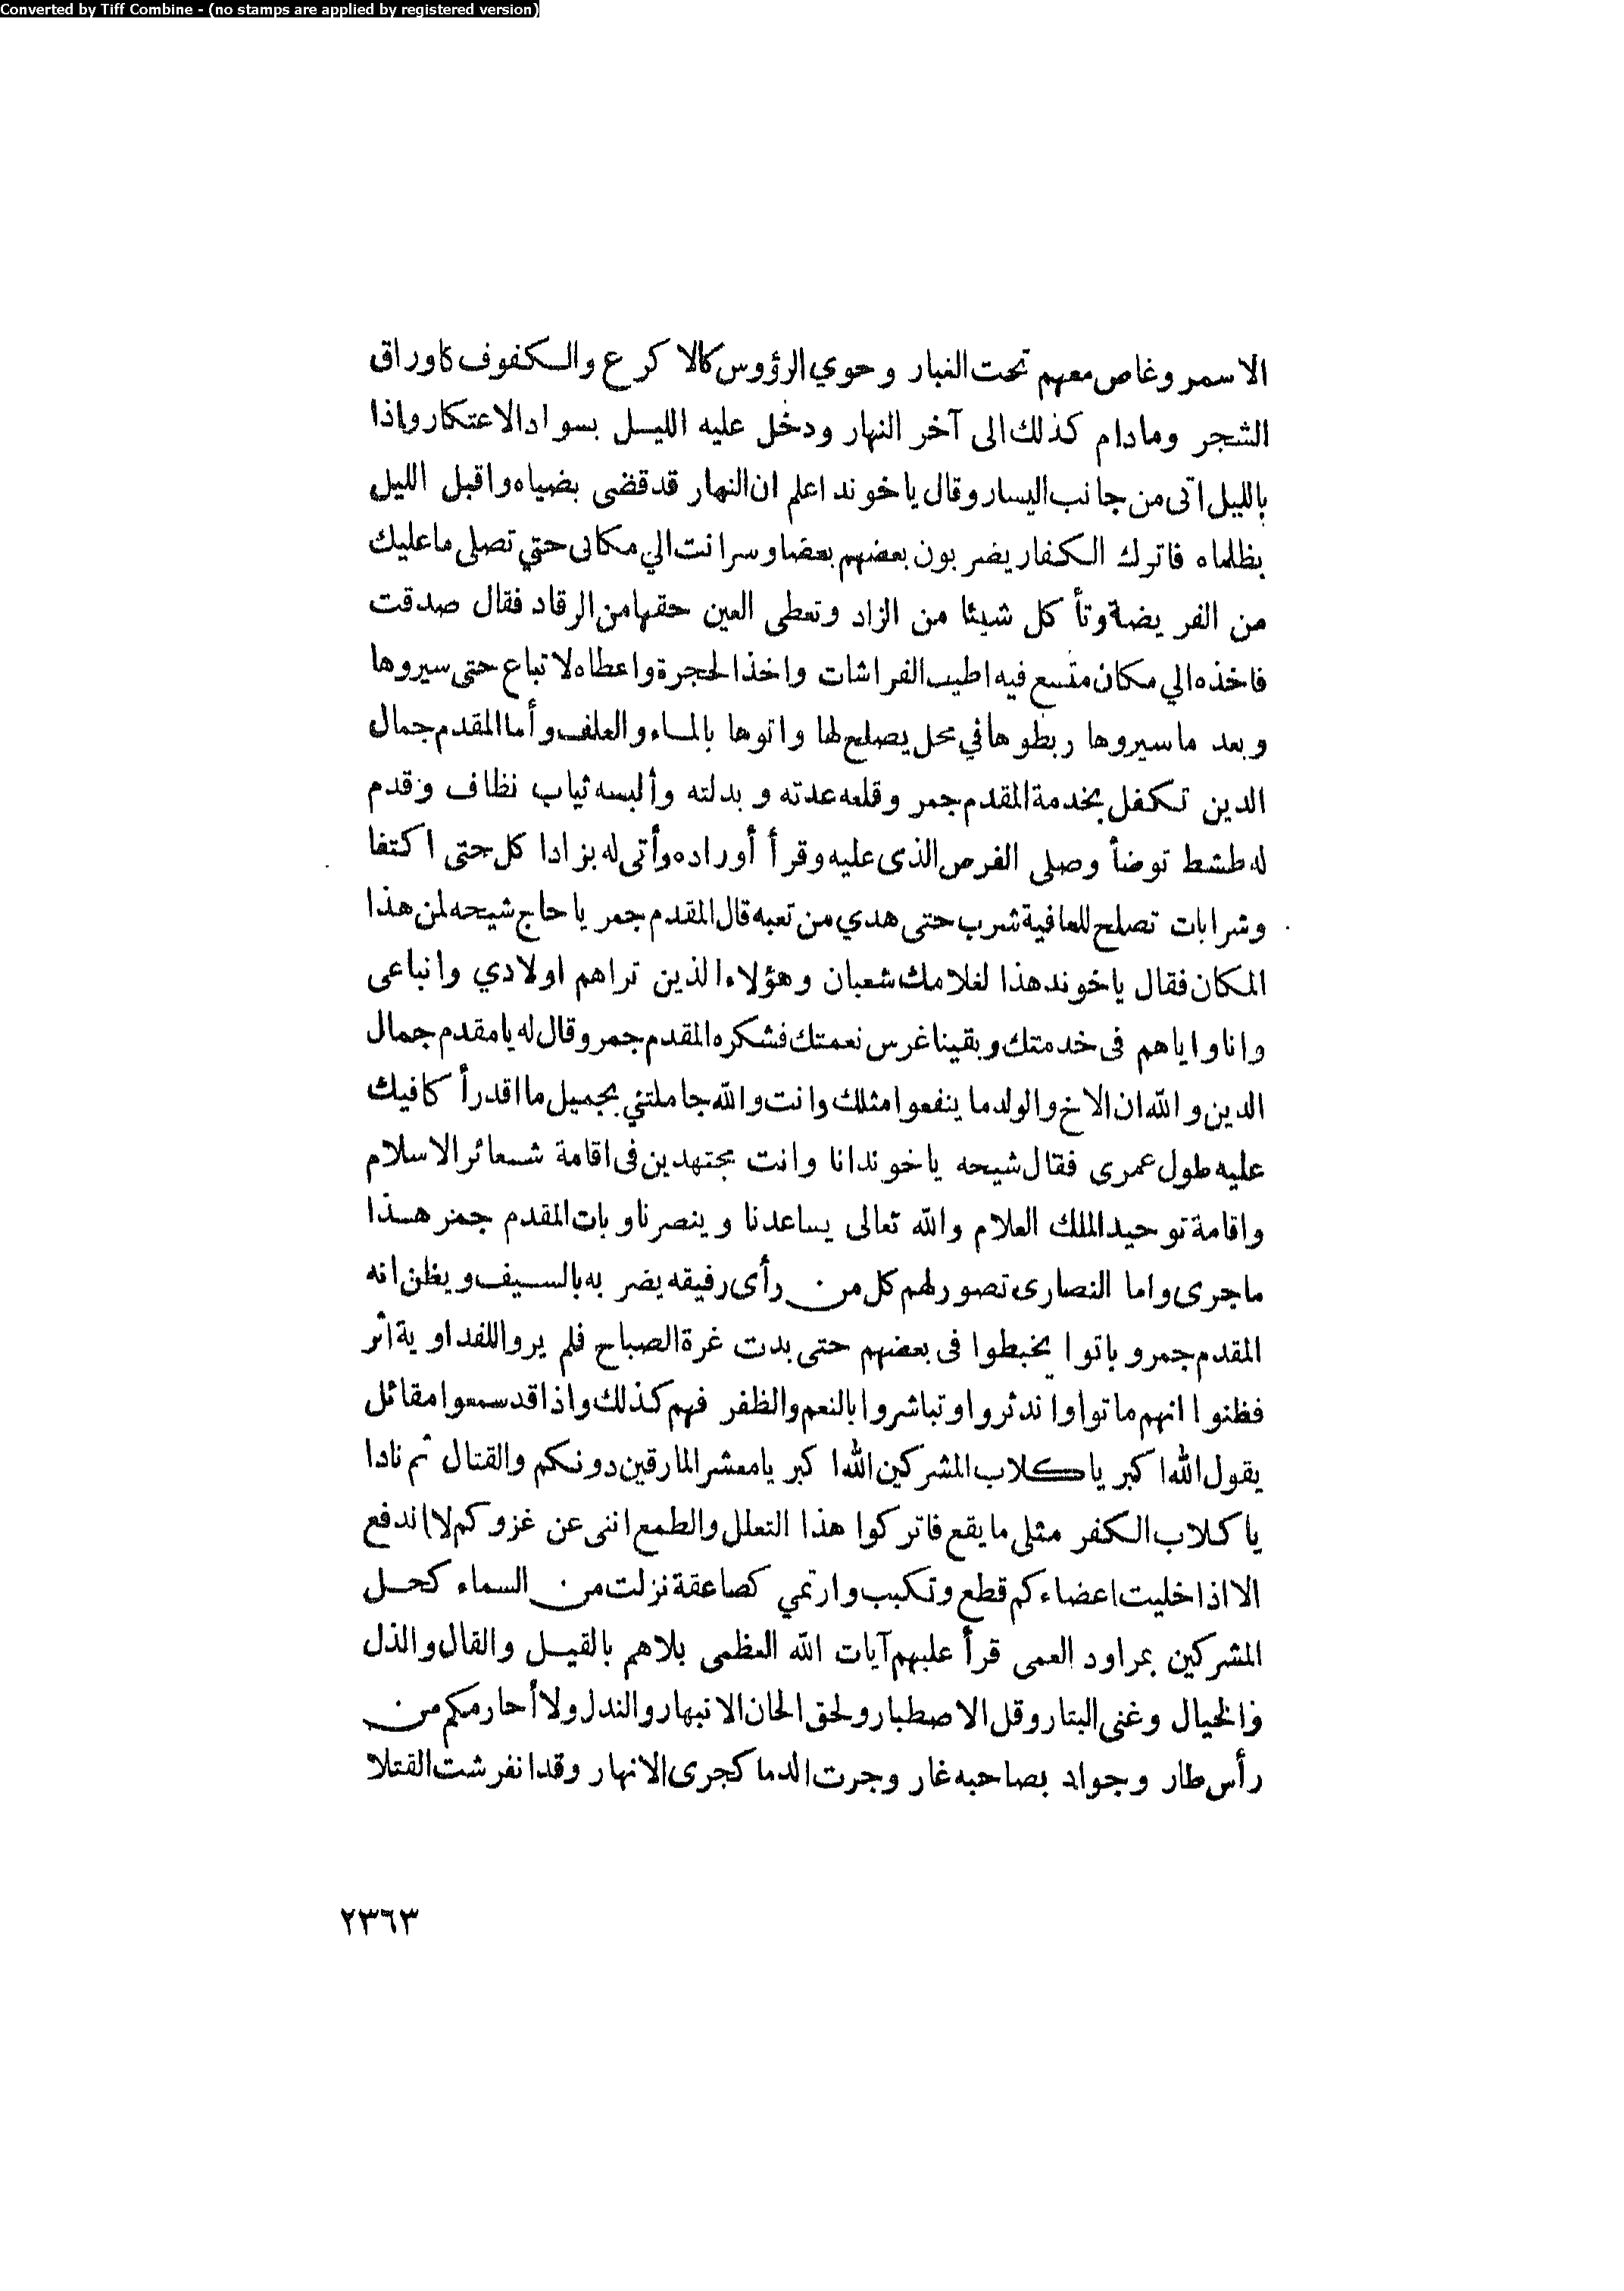 Converted by Tiff Combine - (no stamps are applied by registered version)
الاسمر وغاص معهم تحت الغبار وحوي الرؤوس كالاكرع والكفوف كاوراق
الشجر ومادام كذلك الى آخر النهار ودخل عليه الليل بسواد الاعتكار واذا
بالليل اتى من جانب اليسار وقال ياخوند اعلم ان النهار قد قضى بضياه واقبل الليل
بظلماه فاترك الكفار يضربون بعضهم بعضا وسر انت الي مكانى حتي تصلى ما عليك
من الفريضة وتأكل شيئا من الزاد وتعطى العين حقها من الرقاد فقال صدقت
فاخذه الي مكان متسع فيه اطيب الفراشات واخذ الحجرة واعطاه لاتباع حتى سيروها
وبعد ماسيروها ربطوها في محل يصلح لها واتوها بالماء والعلف وأما المقدم جمال
الدين تكفل بخدمة المقدم جمر وقلعه عدته وبدلته وألبسه ثياب نظاف وقدم
له طشط توضأ وصلى الفرص الذى عليه وقرأ أوراده وأتى له بزاد اكل حتى اكتفا
وشرابات تصلح للعافية شرب حتى هدي من تعبه قال المقدم جمر ياحاج شيحه لمن هذا
المكان فقال ياخوند هذا لغلامك شعبان وهؤلاء الذين تراهم اولادي واتباعى
وانا واياهم فى خدمتك وبقينا غرس نعمتك فشكره المقدم جمر وقال له يامقدم جمال
الدين والله ان الاخ والولد ما ينفعوا مثلك وانت والله جاملتني بجميل ما اقدر أكافيك
عليه طول عمرى فقال شيحه ياخوند انا وانت مجتهدين فى اقامة شعائر الاسلام
واقامة توحيد الملك العلام والله تعالى يساعدنا وينصرنا وبات المقدم جمر هذا
ماجرى واما النصارى تصور لهم كل من رأى رفيقه يضر به بالسيف ويظن انه
المقدم جمر وباتوا يخبطوا فى بعضهم حتى بدت غرة الصباح فلم يروا للفداوية اثر
فظنوا انهم ماتوا واندثروا وتباشروا بالنعم والظفر فهم كذلك واذا قد سمعوا مقائل
يقول الله اكبر ياكلاب المشركين الله اكبر يامعشر المارقين دونكم والقتال ثم نادا
ياكلاب الكفر مثلى ما يقع فاتركوا هذا التعلل والطمع اننى عن غزوكم لا اندفع
الا اذا خليت اعضاءكم قطع وتكبب وارتمي كصاعقة نزلت من السماء كحل
المشركين بمراود العمى قرأ عليهم آيات الله العظمى بلاهم بالقيل والقال والذل
والخيال وغنى البتار وقل الاصطبار ولحق الجان الانبهار والندل ولا أحار مكم من
رأس طار وجواد بصاحبه غار وجرت الدما كجرى الانهار وقد انفرشت القتلا
٢٣٦٣